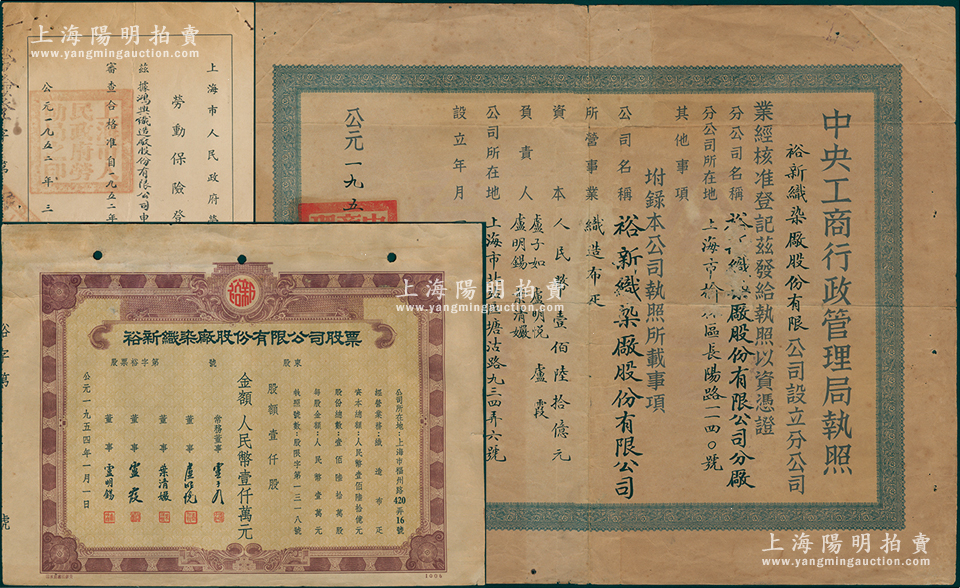 上海陽明拍賣
www.yangmingauction.com
上海陽明拍賣
www.yangmingauction.com
上海陽明拍賣
www.yangmingauction.com
上海陽明拍賣
www.yangmingauction.com
中央工商行政管理局執照
裕新織染廠股份有限公司設立分公司
業經核准登記茲發給執照以資憑證
分公司名稱 裕新織染廠股份有限公司分廠
分公司所在地 上海市榆林區長陽路一一四〇號
其他事項
附錄本公司執照所載事項
公司名稱 裕新織染廠股份有限公司
所營事業 織造布疋
資本 人民幣壹佰陸拾億元
負責人 盧子如 盧明悅 盧霞
盧明錫 葉清嬡
公司所在地 上海市北 塘沽路九三四弄六號
設立年月
公元一九五
上海市人民政府勞
勞動保險登
茲據鴻興織造廠股份有限公司申
審查合格准自一九五二年
公元一九五二年三
裕新織染廠股份有限公司股票
股票裕字第 號
東股
公司所在地:上海市福州路420弄16號
經營業務:織造布疋
資本總額:人民幣壹佰陸拾億元
股份總數:壹佰陸拾萬股
每股金額:人民幣壹萬元
執照號數:股限字第一三一八號
股額壹仟股
金額人民幣壹仟萬元
常務董事
董事
董事 葉清嬡
董事 盧霞
董事 盧明錫
公元一九五四年一月一日
裕字第
號